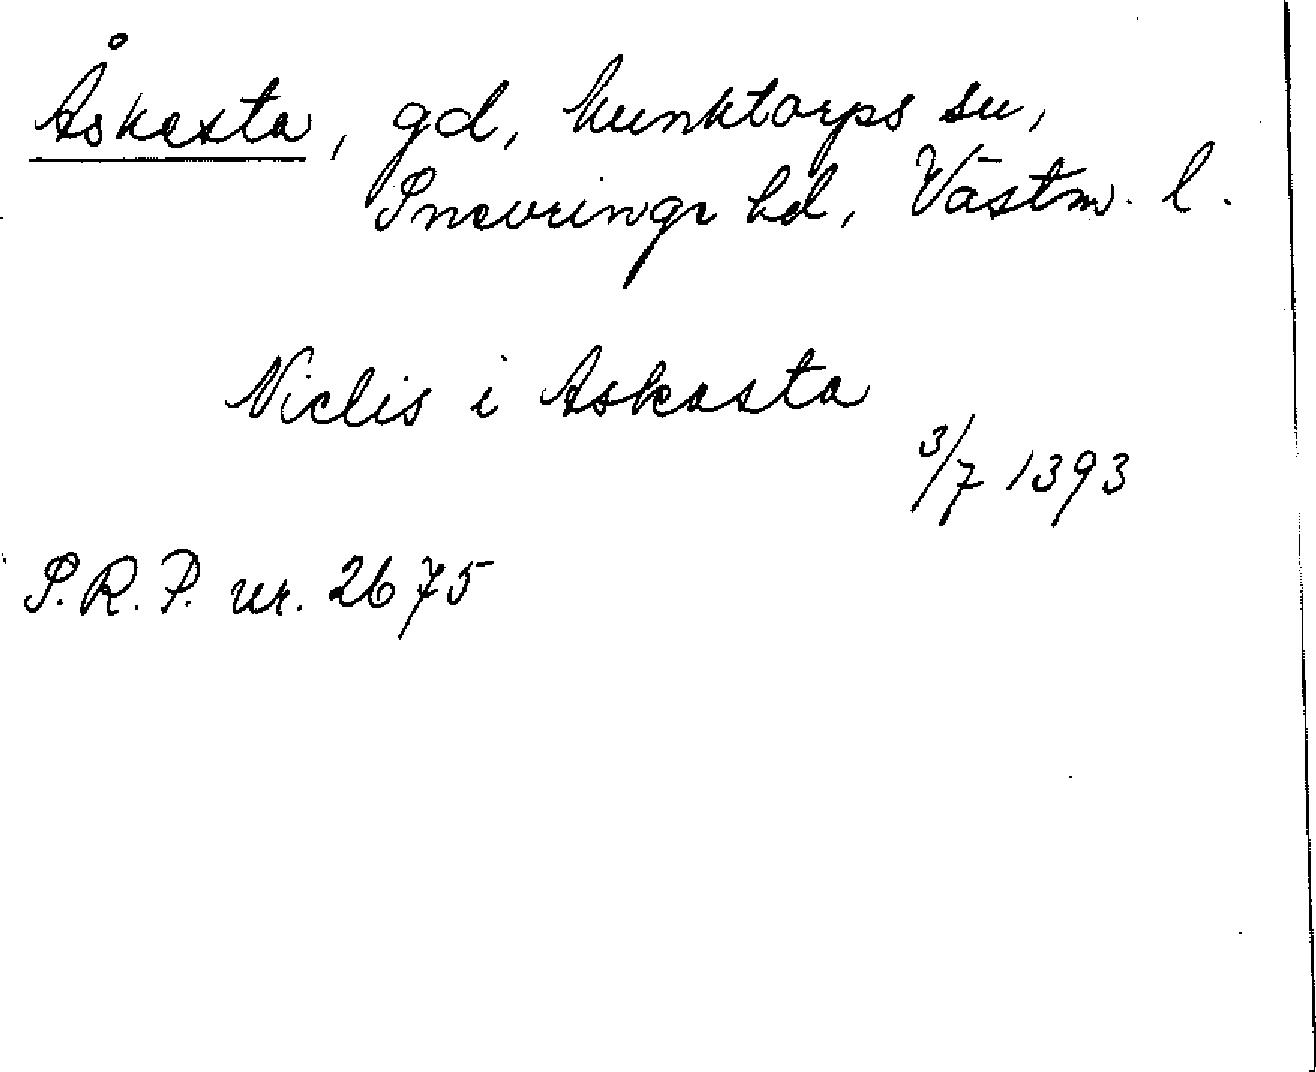 Åskesta, gd, Munktorps sn,
Snevringe hd, Västm. l.
Niclis i Askasta
3/7 1393
S.R.P. nr. 2675